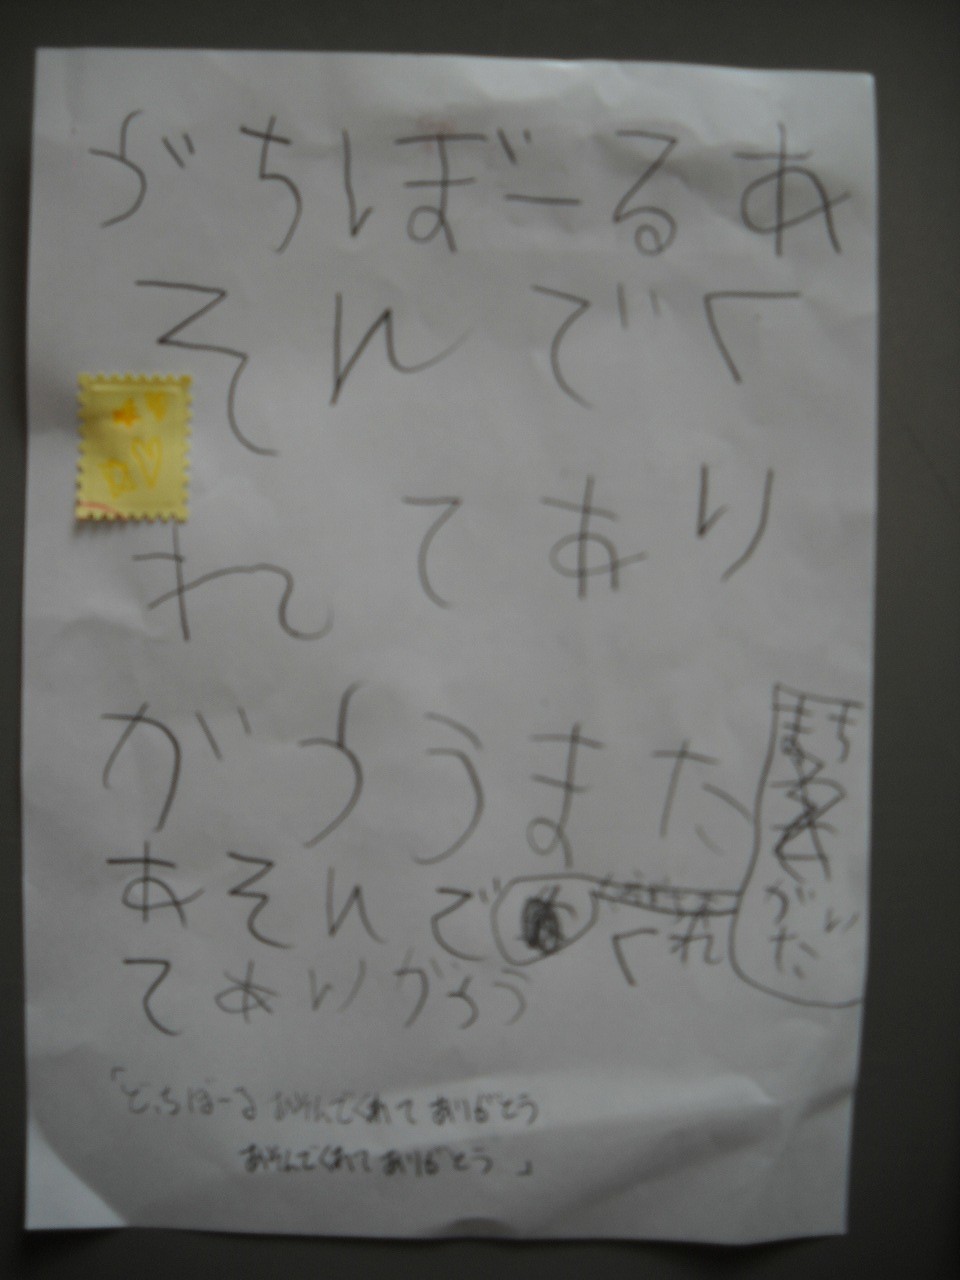 どちぼーるあ
そんでく
れてあり
がとうまた
まちがい
だ
あそんで
くれ
てありがとう
「どっちぼーる あそんでくれて ありがとう
あそんでくれて ありがとう」